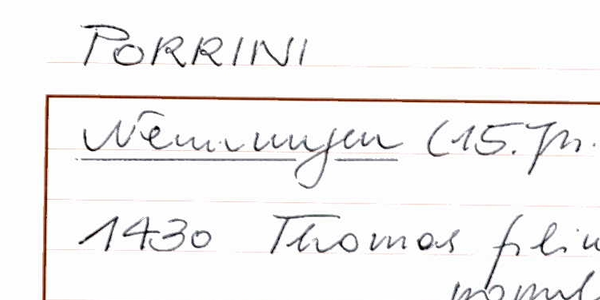 PORRINI
Nennungen (15. Jh.
1430 Thomas filiu